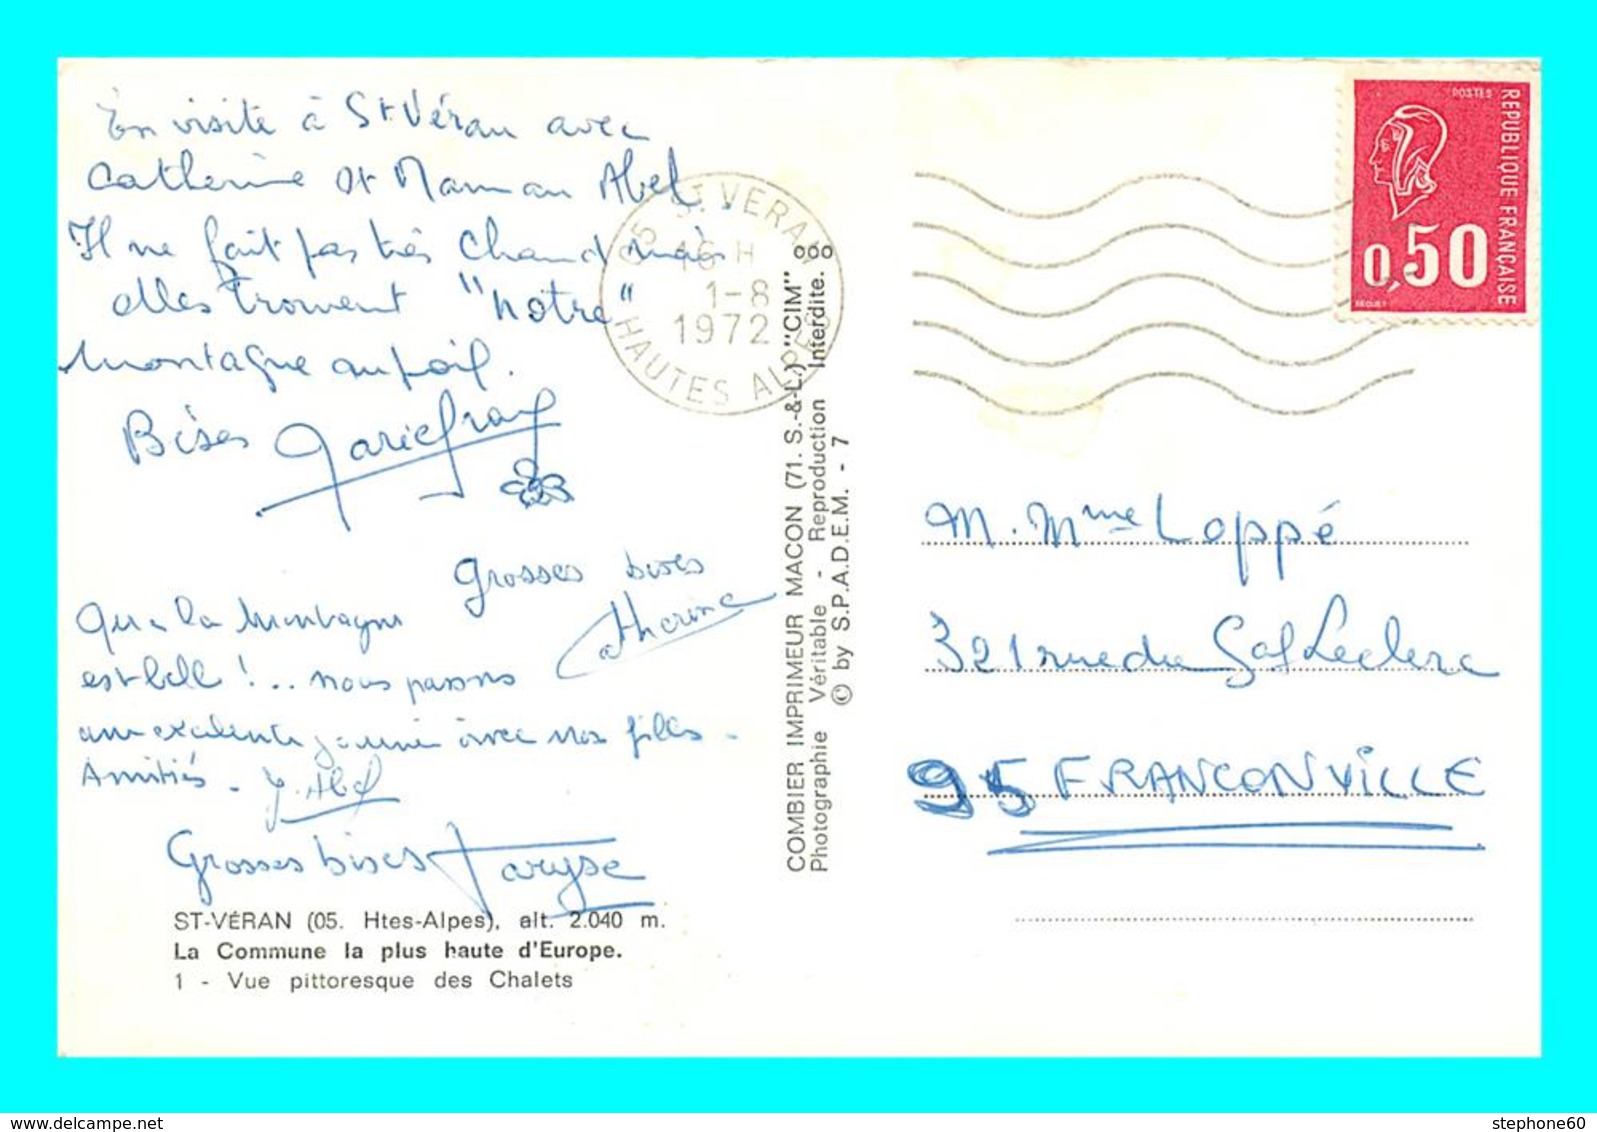 En visite à St Véran avec
Catherine et Maman Abel.
Il ne fait pas très chaud mais
elles trouvent "notre"
montagne au poil.
Bises Mariefrance
Grosses bises
Catherine
Que la Montagne
est belle !.. nous passons
une excelente journée avec nos filles.
Amitiés. Y. Abel
Grosses bises Maryse
ST-VÉRAN (05. Htes-Alpes), alt. 2.040 m.
La Commune la plus haute d'Europe.
1 - Vue pittoresque des Chalets
05 ST VERAN
16 H
1-8
1972
HAUTES ALPES
COMBIER IMPRIMEUR MACON (71. S.-&-L.) "CIM"
Photographie Véritable - Reproduction Interdite.
© by S.P.A.D.E.M. - 7
POSTES
REPUBLIQUE FRANÇAISE
0,50
BEQUET
M. Mme Loppé
321 rue du Gal Leclerc
95 FRANCONVILLE
stephone60